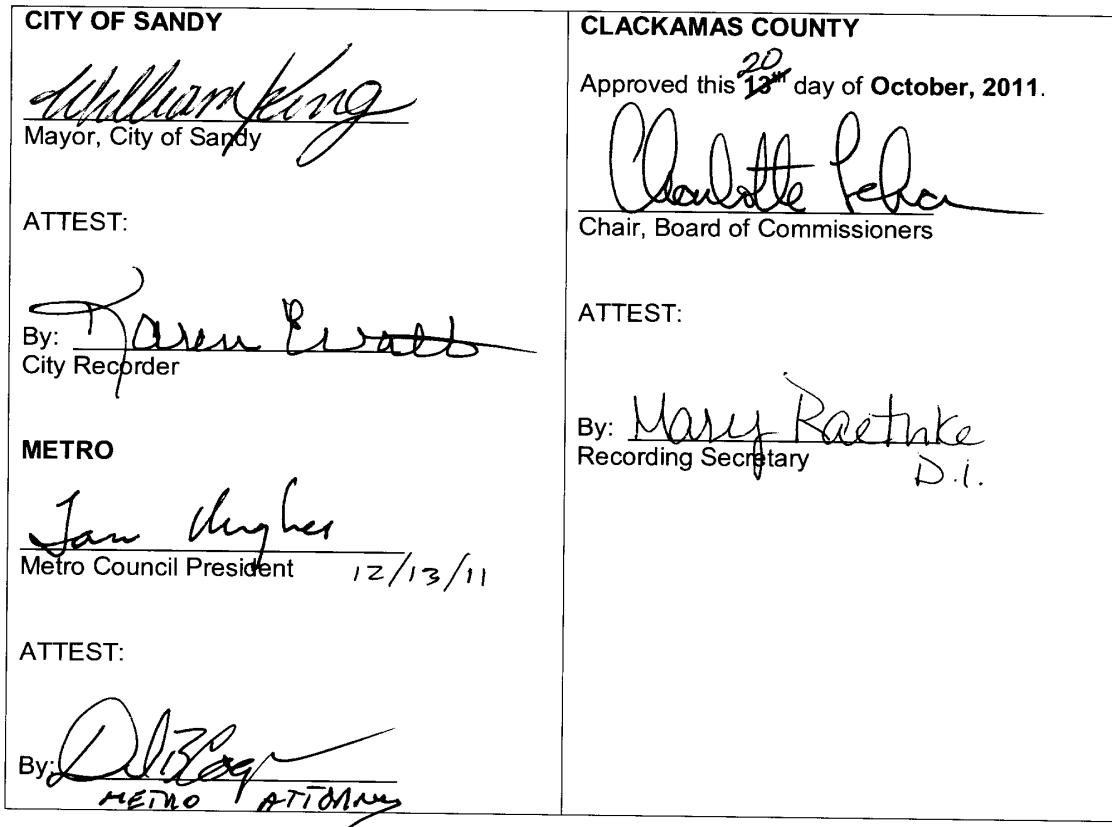 CITY OF SANDY
William King
Mayor, City of Sandy
ATTEST:
By: Karen Evatt
City Recorder
METRO
Tom Hughes
Metro Council President 12/13/11
ATTEST:
By:
METRO ATTORNEY
CLACKAMAS COUNTY
20
Approved this 13th day of October, 2011.
Charlotte Lehan
Chair, Board of Commissioners
ATTEST:
By: Mary Raethke
Recording Secretary
D.I.